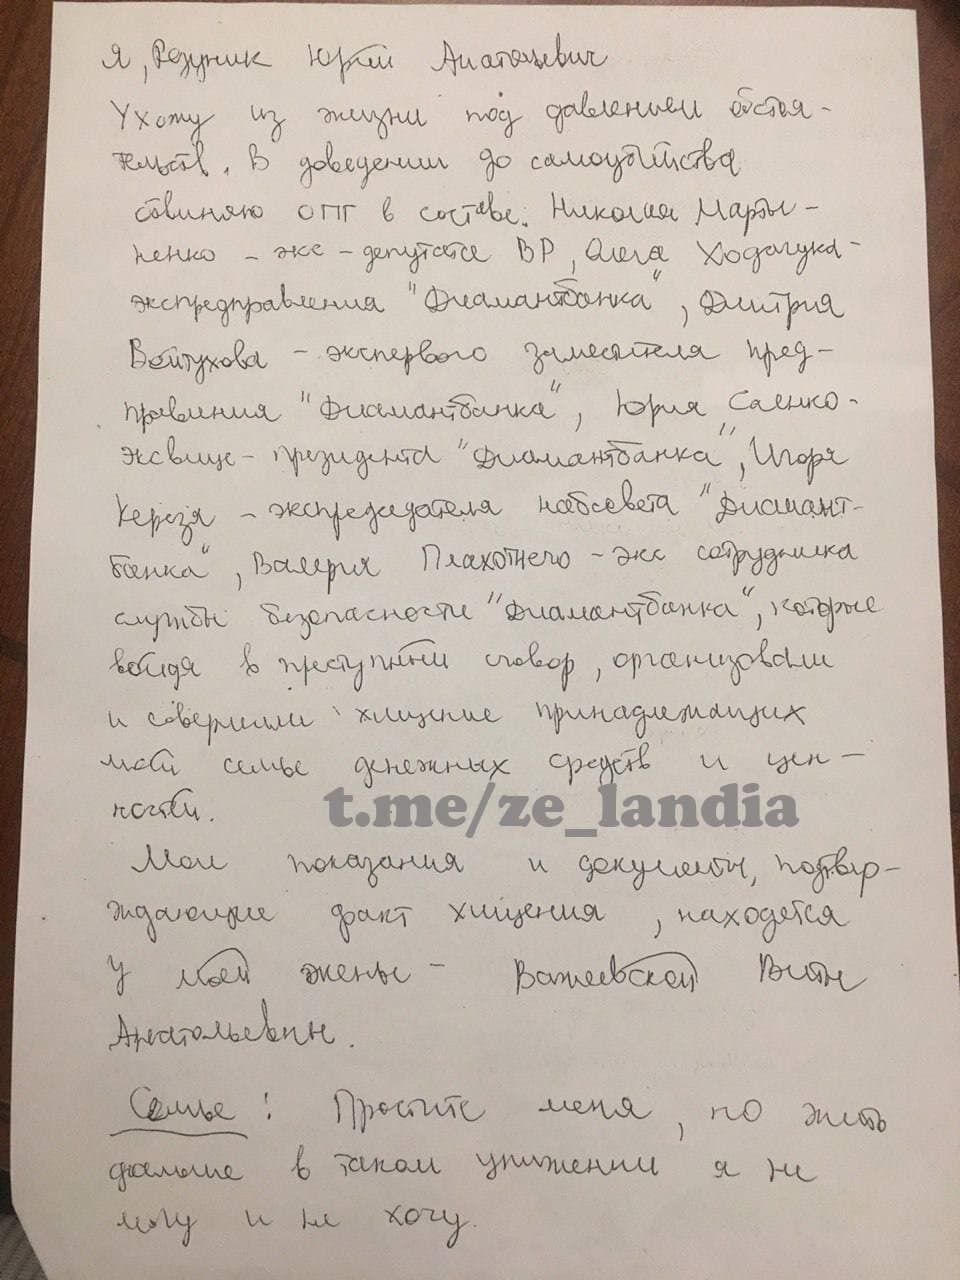 Я, Розуник Юрий Анатольевич
Ухожу из жизни под давлением обстоя-
тельств. В доведении до самоубийства
обвиняю ОПГ в составе. Николая Марты-
ненко - экс-депутата ВР, Олега Ходачука-
экспредправления "Диамантбанка", Дмитрия
Войтухова - экспервого заместителя пред-
правления "Диамантбанка", Юрия Саенко-
эксвице-президента "Диамантбанка", Игоря
Керезя - экспредседателя набсовета "Диамант-
банка", Валерия Плахотнего - экс сотрудника
службы безопасности "Диамантбанка", которые
войдя в преступный сговор, организовали
и совершили хищение принадлежащих
моей семье денежных средств и цен-
ностей.
t.me/ze_landia
Мои показания и документы, подтвер-
ждающие факт хищения, находятся
у моей жены - Виты
Анатольевны.
Семье! Простите меня, но жить
дальше в таком унижении я не
могу и не хочу.